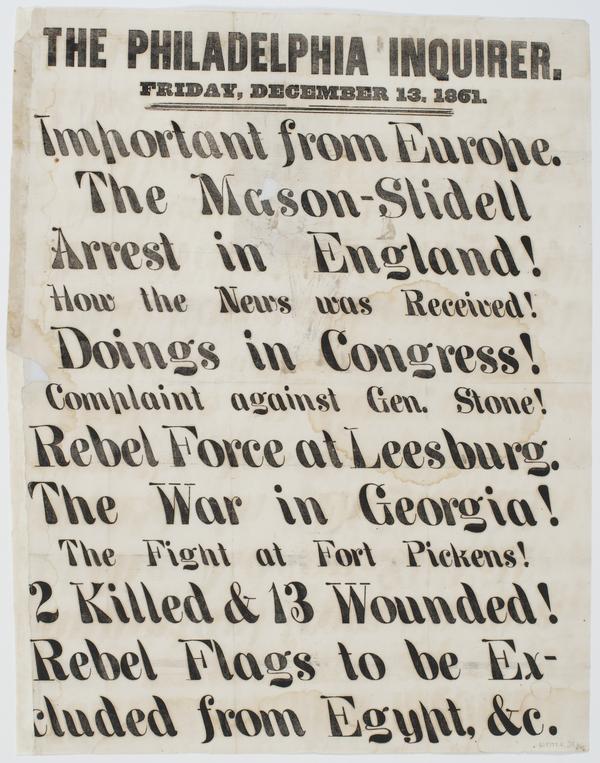 THE PHILADELPHIA INQUIRER.
FRIDAY, DECEMBER 13, 1861.
Important from Europe.
The Mason-Slidell
Arrest in England!
How the News was Received!
Doings in Congress!
Complaint against Gen. Stone!
Rebel Force at Leesburg.
The War in Georgia!
The Fight at Fort Pickens!
2 Killed & 13 Wounded!
Rebel Flags to be Ex-
cluded from Egypt, &c.